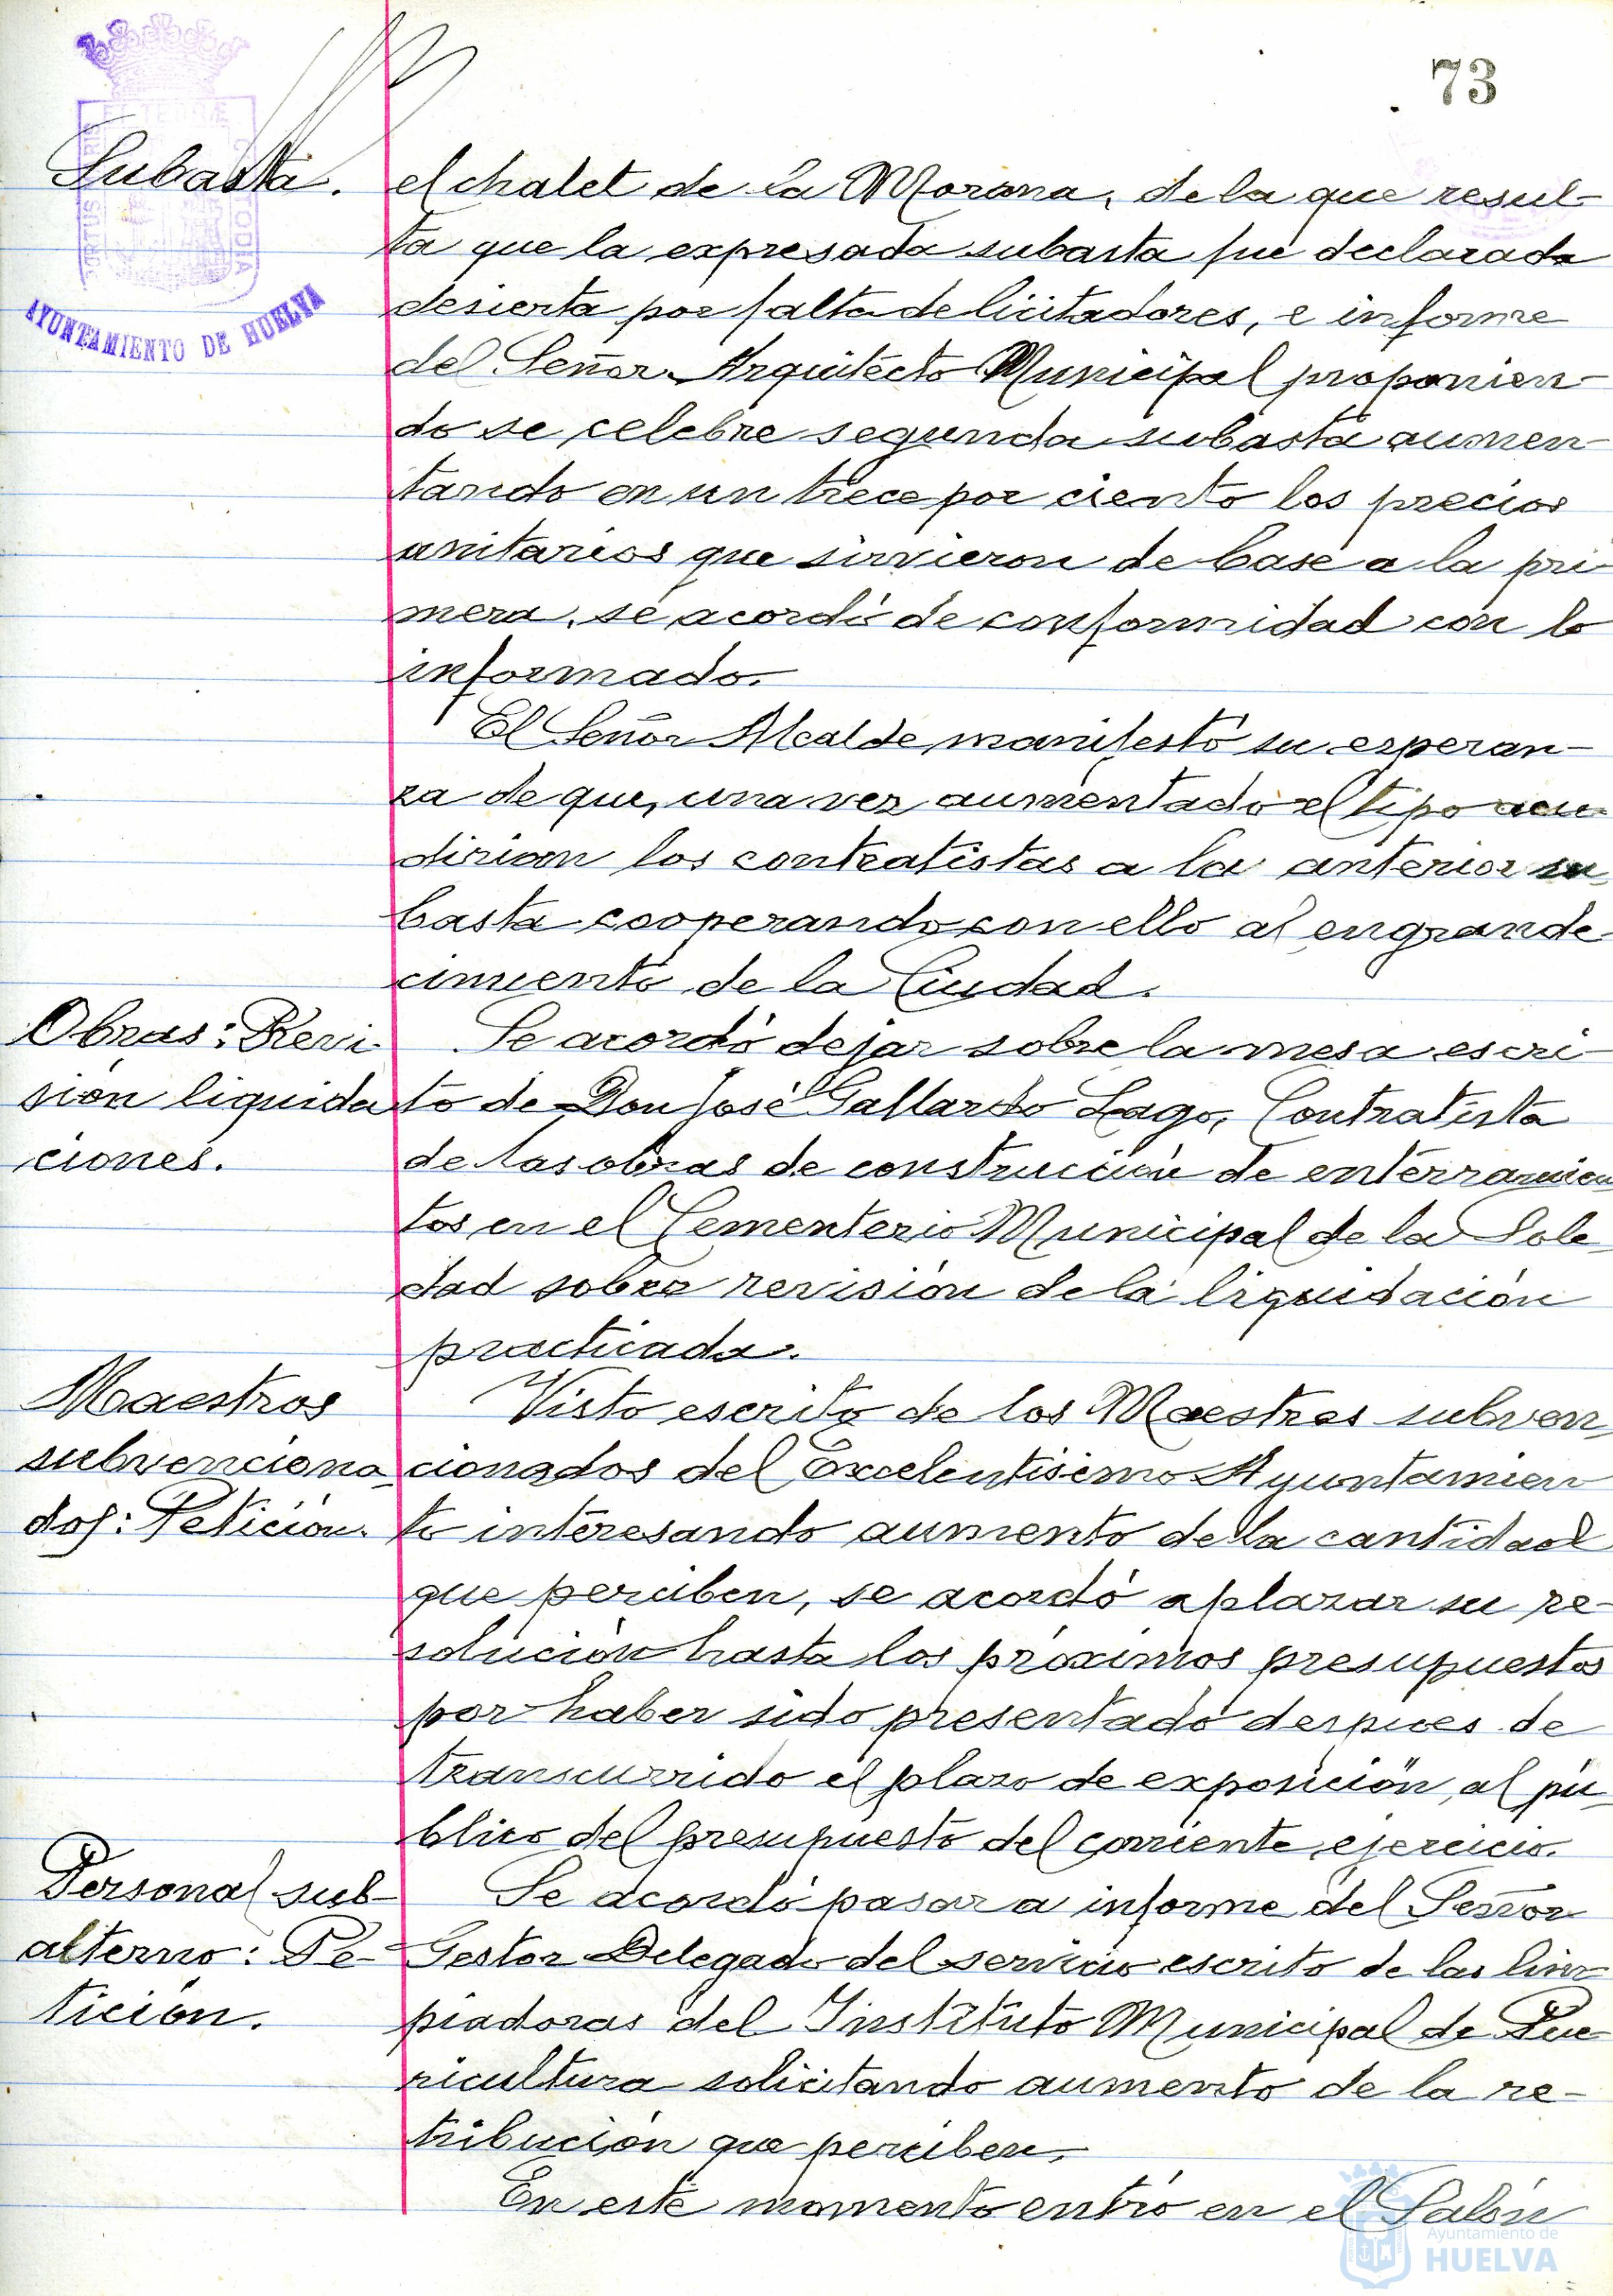 73
Subasta.
el chalet de la Morana, de la que resul-
ta que la expresada subasta fué declarada
desierta por falta de licitadores, e informe
del Señor Arquitecto Municipal proponien-
do se celebre segunda subasta aumen-
tando en un trece por ciento los precios
unitarios que sirvieron de base a la pri-
mera, se acordó de conformidad con lo
informado.
El Señor Alcalde manifestó su esperan-
za de que, una vez aumentado el tipo acu-
dirian los contratistas a la anterior su-
basta cooperando con ello al engrande-
cimiento de la Ciudad.
Obras: Revi-
sión liquida
ciones.
Se acordó dejar sobre la mesa escri-
to de Don José Gallardo Lago, Contratista
de las obras de construcción de enterramien
tos en el Cementerio Municipal de la Sole-
dad sobre revisión de la liquidación
practicada.
Maestros
subvenciona-
dos: Petición.
Visto escrito de los Maestros subven-
cionados del Excelentísimo Ayuntamien
to interesando aumento de la cantidad
que perciben, se acordó aplazar su re-
solución hasta los próximos presupuestos
por haber sido presentado despues de
transcurrido el plazo de exposición al pú-
blico del presupuesto del corriente ejercicio.
Personal sub-
alterno: Pe-
tición.
Se acordó pasar a informe del Señor
Gestor Delegado del servicio escrito de las lim
piadoras del Instituto Municipal de Pue
ricultura solicitando aumento de la re-
tribución que perciben.
En este momento entró en el Salón
AYUNTAMIENTO DE HUELVA
Ayuntamiento de
HUELVA